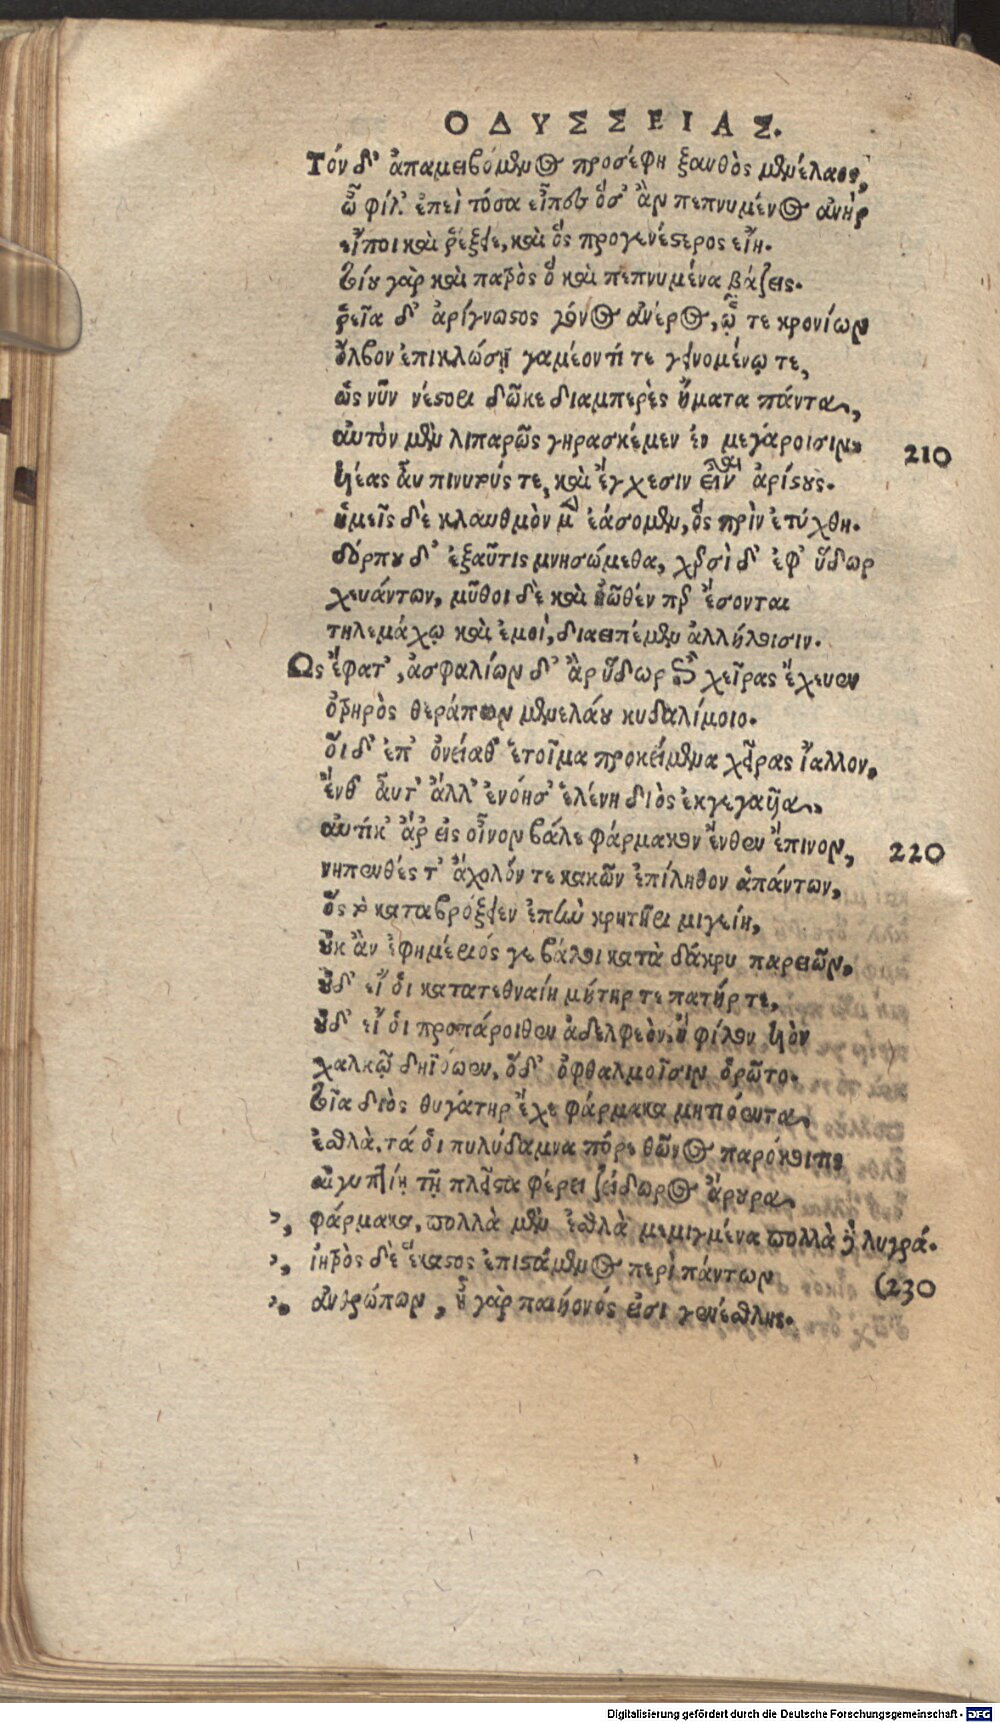 ΟΔΥΣΣΕΙΑΣ.
Τόν δ' ἀπαμειβόμενος προσέφη ξανθὸς μενέλαος,
ὦ φίλ' ἐπεὶ τόσα εἶπες ὅσ' ἂν πεπνυμένος ἀνὴρ
εἴποι καὶ ῥέξειε, καὶ ὃς προγενέστερος εἴη.
τοίου γὰρ καὶ πατρὸς ὃ καὶ πεπνυμένα βάζεις.
ῥεῖα δ' ἀρίγνωστος γόνος ἀνέρος, ᾧ τε κρονίων
ὄλβον ἐπικλώσῃ γαμέοντί τε γεινομένῳ τε,
ὡς νῦν νέστορι δῶκε διαμπερὲς ἤματα πάντα,
αὐτὸν μὲν λιπαρῶς γηρασκέμεν ἐν μεγάροισιν.
210
υἱέας αὖ πινυτούς τε, καὶ ἔγχεσιν εἶναι ἀρίστους.
ἡμεῖς δὲ κλαυθμὸν μὲν ἐάσομεν, ὃς πρὶν ἐτύχθη.
δόρπου δ' ἐξαῦτις μνησώμεθα, χερσὶ δ' ἐφ' ὕδωρ
χευάντων, μῦθοι δὲ καὶ ἠῶθέν περ ἔσονται
τηλεμάχῳ καὶ ἐμοί, διαειπέμεν ἀλλήλοισιν.
Ως ἔφατ', ἀσφαλίων δ' ἂρ ὕδωρ ἐπὶ χεῖρας ἔχευεν
ὀτρηρὸς θεράπων μενελάου κυδαλίμοιο.
οἱ δ' ἐπ' ὀνείαθ' ἑτοῖμα προκείμενα χεῖρας ἴαλλον.
ἔνθ' αὖτ' ἄλλ' ἐνόησ' ἑλένη διὸς ἐκγεγαυῖα.
αὐτίκ' ἄρ' εἰς οἶνον βάλε φάρμακον ἔνθεν ἔπινον,
220
νηπενθές τ' ἄχολόν τε κακῶν ἐπίληθον ἁπάντων,
ὃς τὸ καταβρόξειεν ἐπὴν κρητῆρι μιγείη,
οὐκ ἂν ἐφημέριός γε βάλοι κατὰ δάκρυ παρειῶν.
οὐδ' εἴ οἱ κατατεθναίη μήτηρ τε πατήρ τε,
οὐδ' εἴ οἱ προπάροιθεν ἀδελφεὸν, ἢ φίλον υἱὸν
χαλκῷ δηϊόῳεν, ὅδ' ὀφθαλμοῖσιν ὁρῷτο.
τοῖα διὸς θυγάτηρ ἔχε φάρμακα μητιόεντα,
ἐσθλὰ, τά οἱ πολύδαμνα πόρε θῶνος παράκοιτις
αἰγυπτίη τῇ πλεῖστα φέρει ζείδωρος ἄρουρα
„ φάρμακα, πολλὰ μὲν ἐσθλὰ μεμιγμένα πολλὰ δὲ λυγρά.
„ ἰητρὸς δὲ ἕκαστος ἐπιστάμενος περὶ πάντων
(230
„ ἀνθρώπων, ἦ γὰρ παιήονός εἰσι γενέθλης.
Digitalisierung gefördert durch die Deutsche Forschungsgemeinschaft - DFG